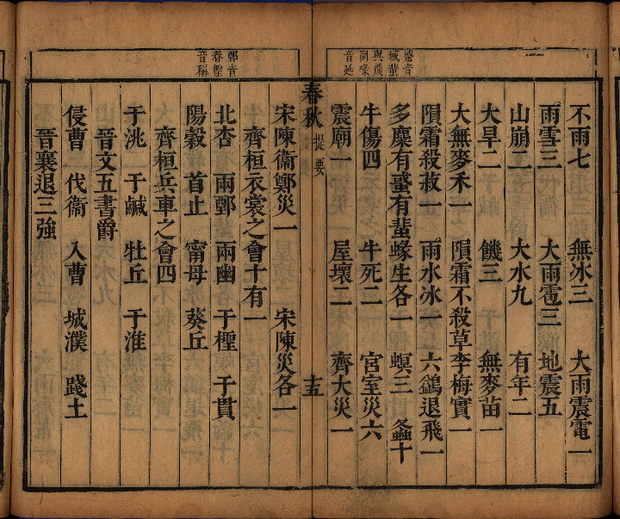 不雨七 無冰三 大雨震電一
雨雪三 大雨雹三 地震五
山崩二 大水九 有年二
大旱二 饑三 無麥苗一
大無麥禾一 隕霜不殺草李梅實一
隕霜殺菽一 雨水冰一 六鷁退飛一
多麋有蜮有蜚蝝生各一 螟三 螽十
牛傷四 牛死二 宮室災六
震廟一 屋壞二 齊大災一
春秋 提要 十五
宋陳衞鄭災一 宋陳災各一
齊桓衣裳之會十有一
北杏 兩鄄 兩幽 于檉 于貫
陽榖 首止 甯母 葵丘
齊桓兵車之會四
于洮 于鹹 牡丘 于淮
晉文五書爵
侵曹 伐衞 入曹 城濮 踐土
晉襄退三強
蜮音
域蜚
音延
鄄音
音稱